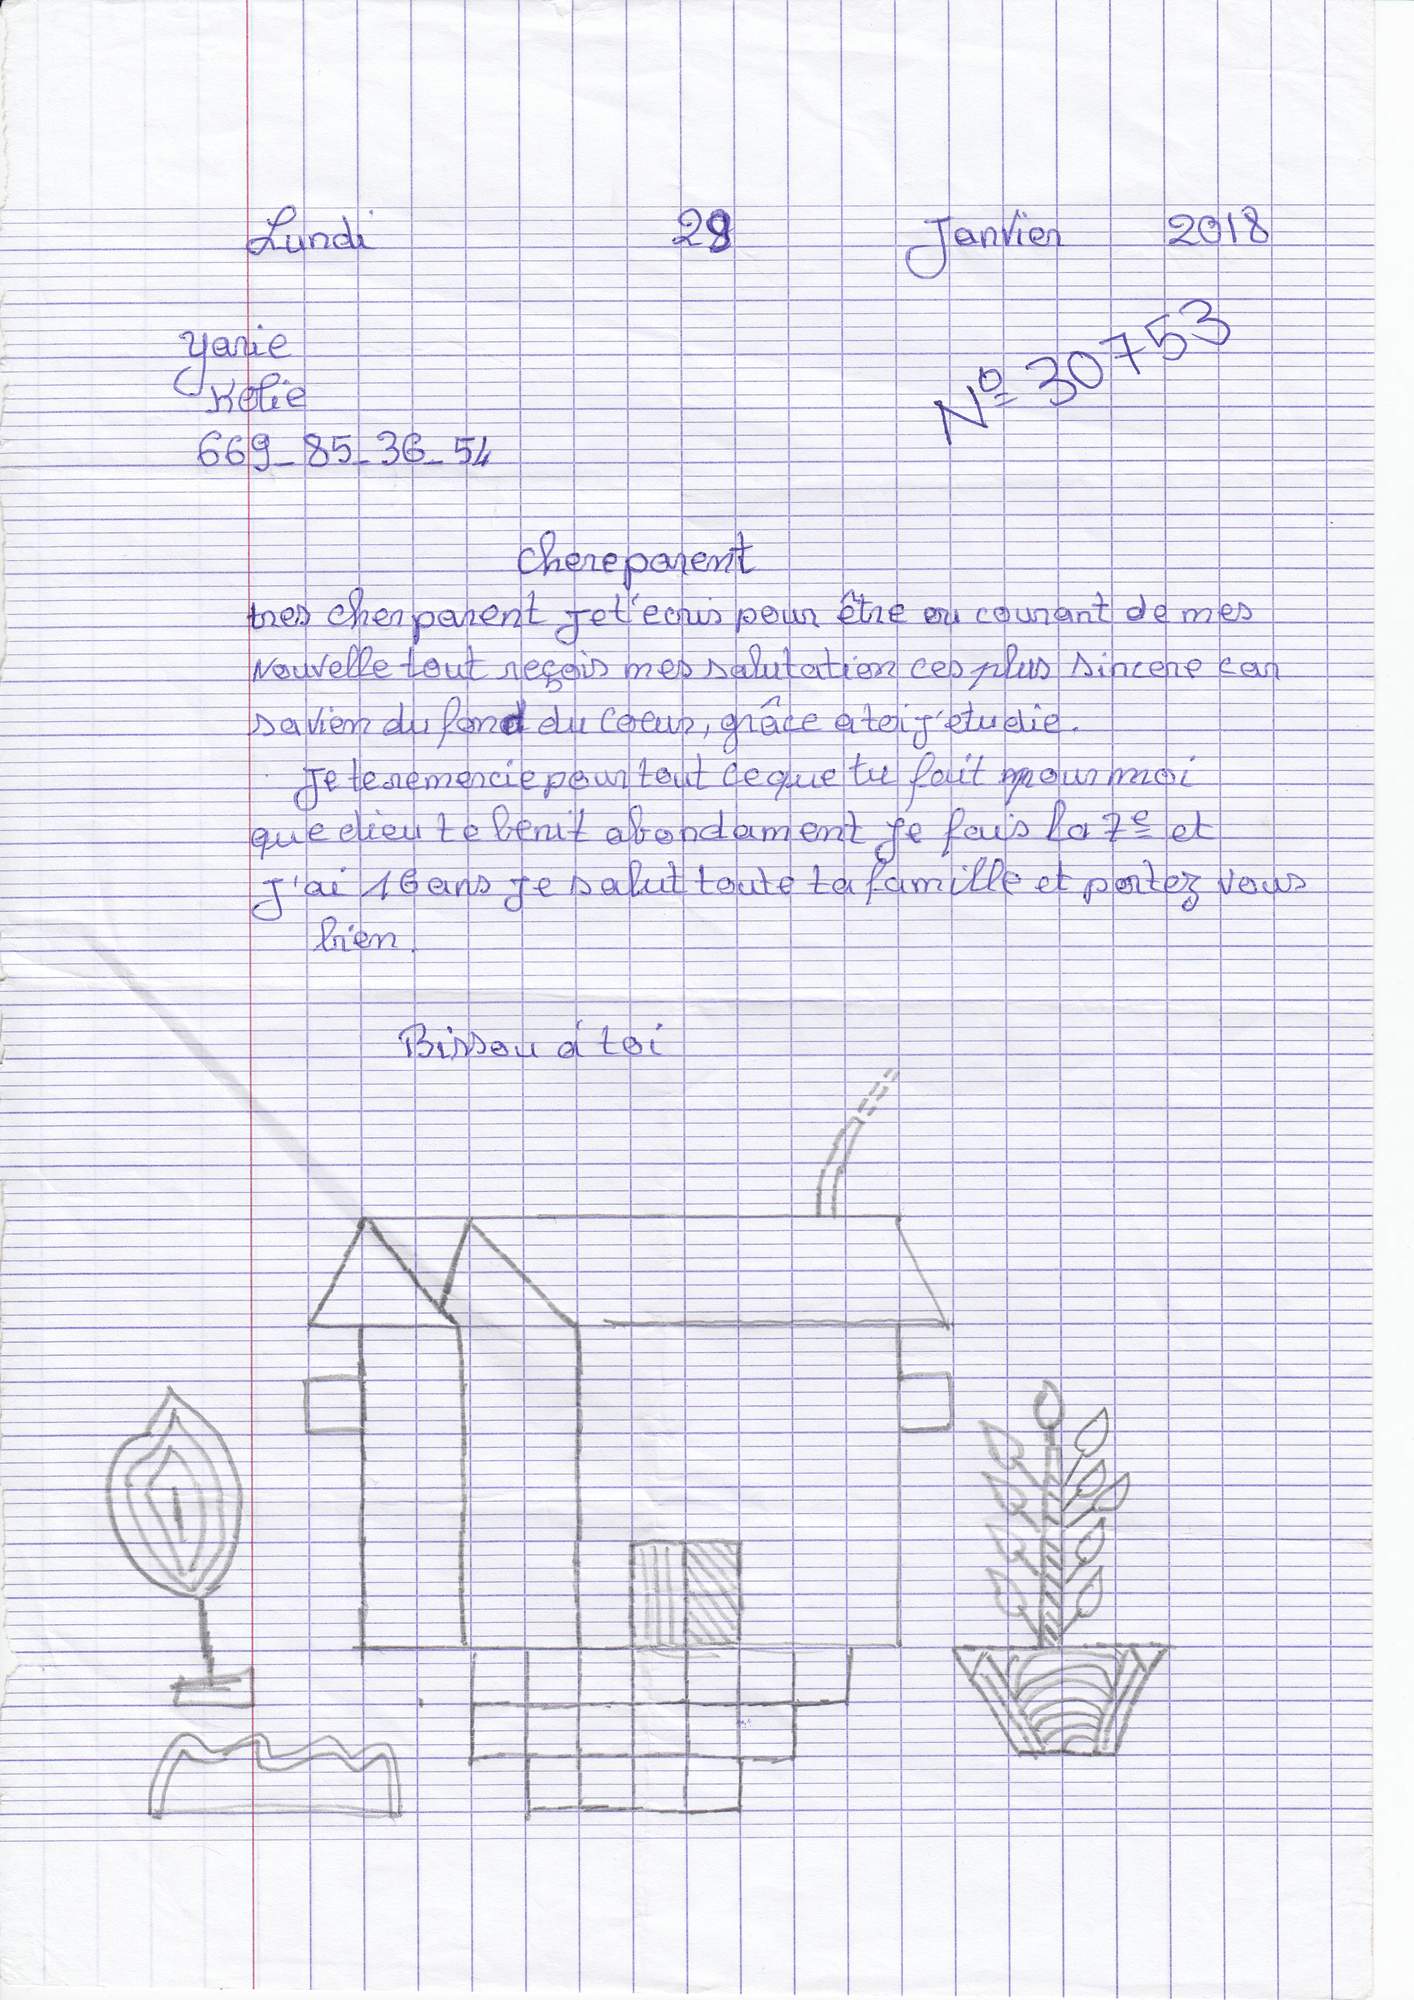 Lundi 29 Janvier 2018
N° 30753
Yarie
Kolie
669_85_36_54
chereparent
tres cherparent je t'ecris pour être au courant de mes
Nouvelle tout reçois mes salutation ces plus sincere car
sa vien du fond du coeur, grâce a toi j'etudie.
Je te remercie pour tout ce que tu fait pour moi
que dieu te benit abondament je fais la 7e et
j'ai 16 ans je salut toute ta famille et portez vous
bien.
Bissou à toi